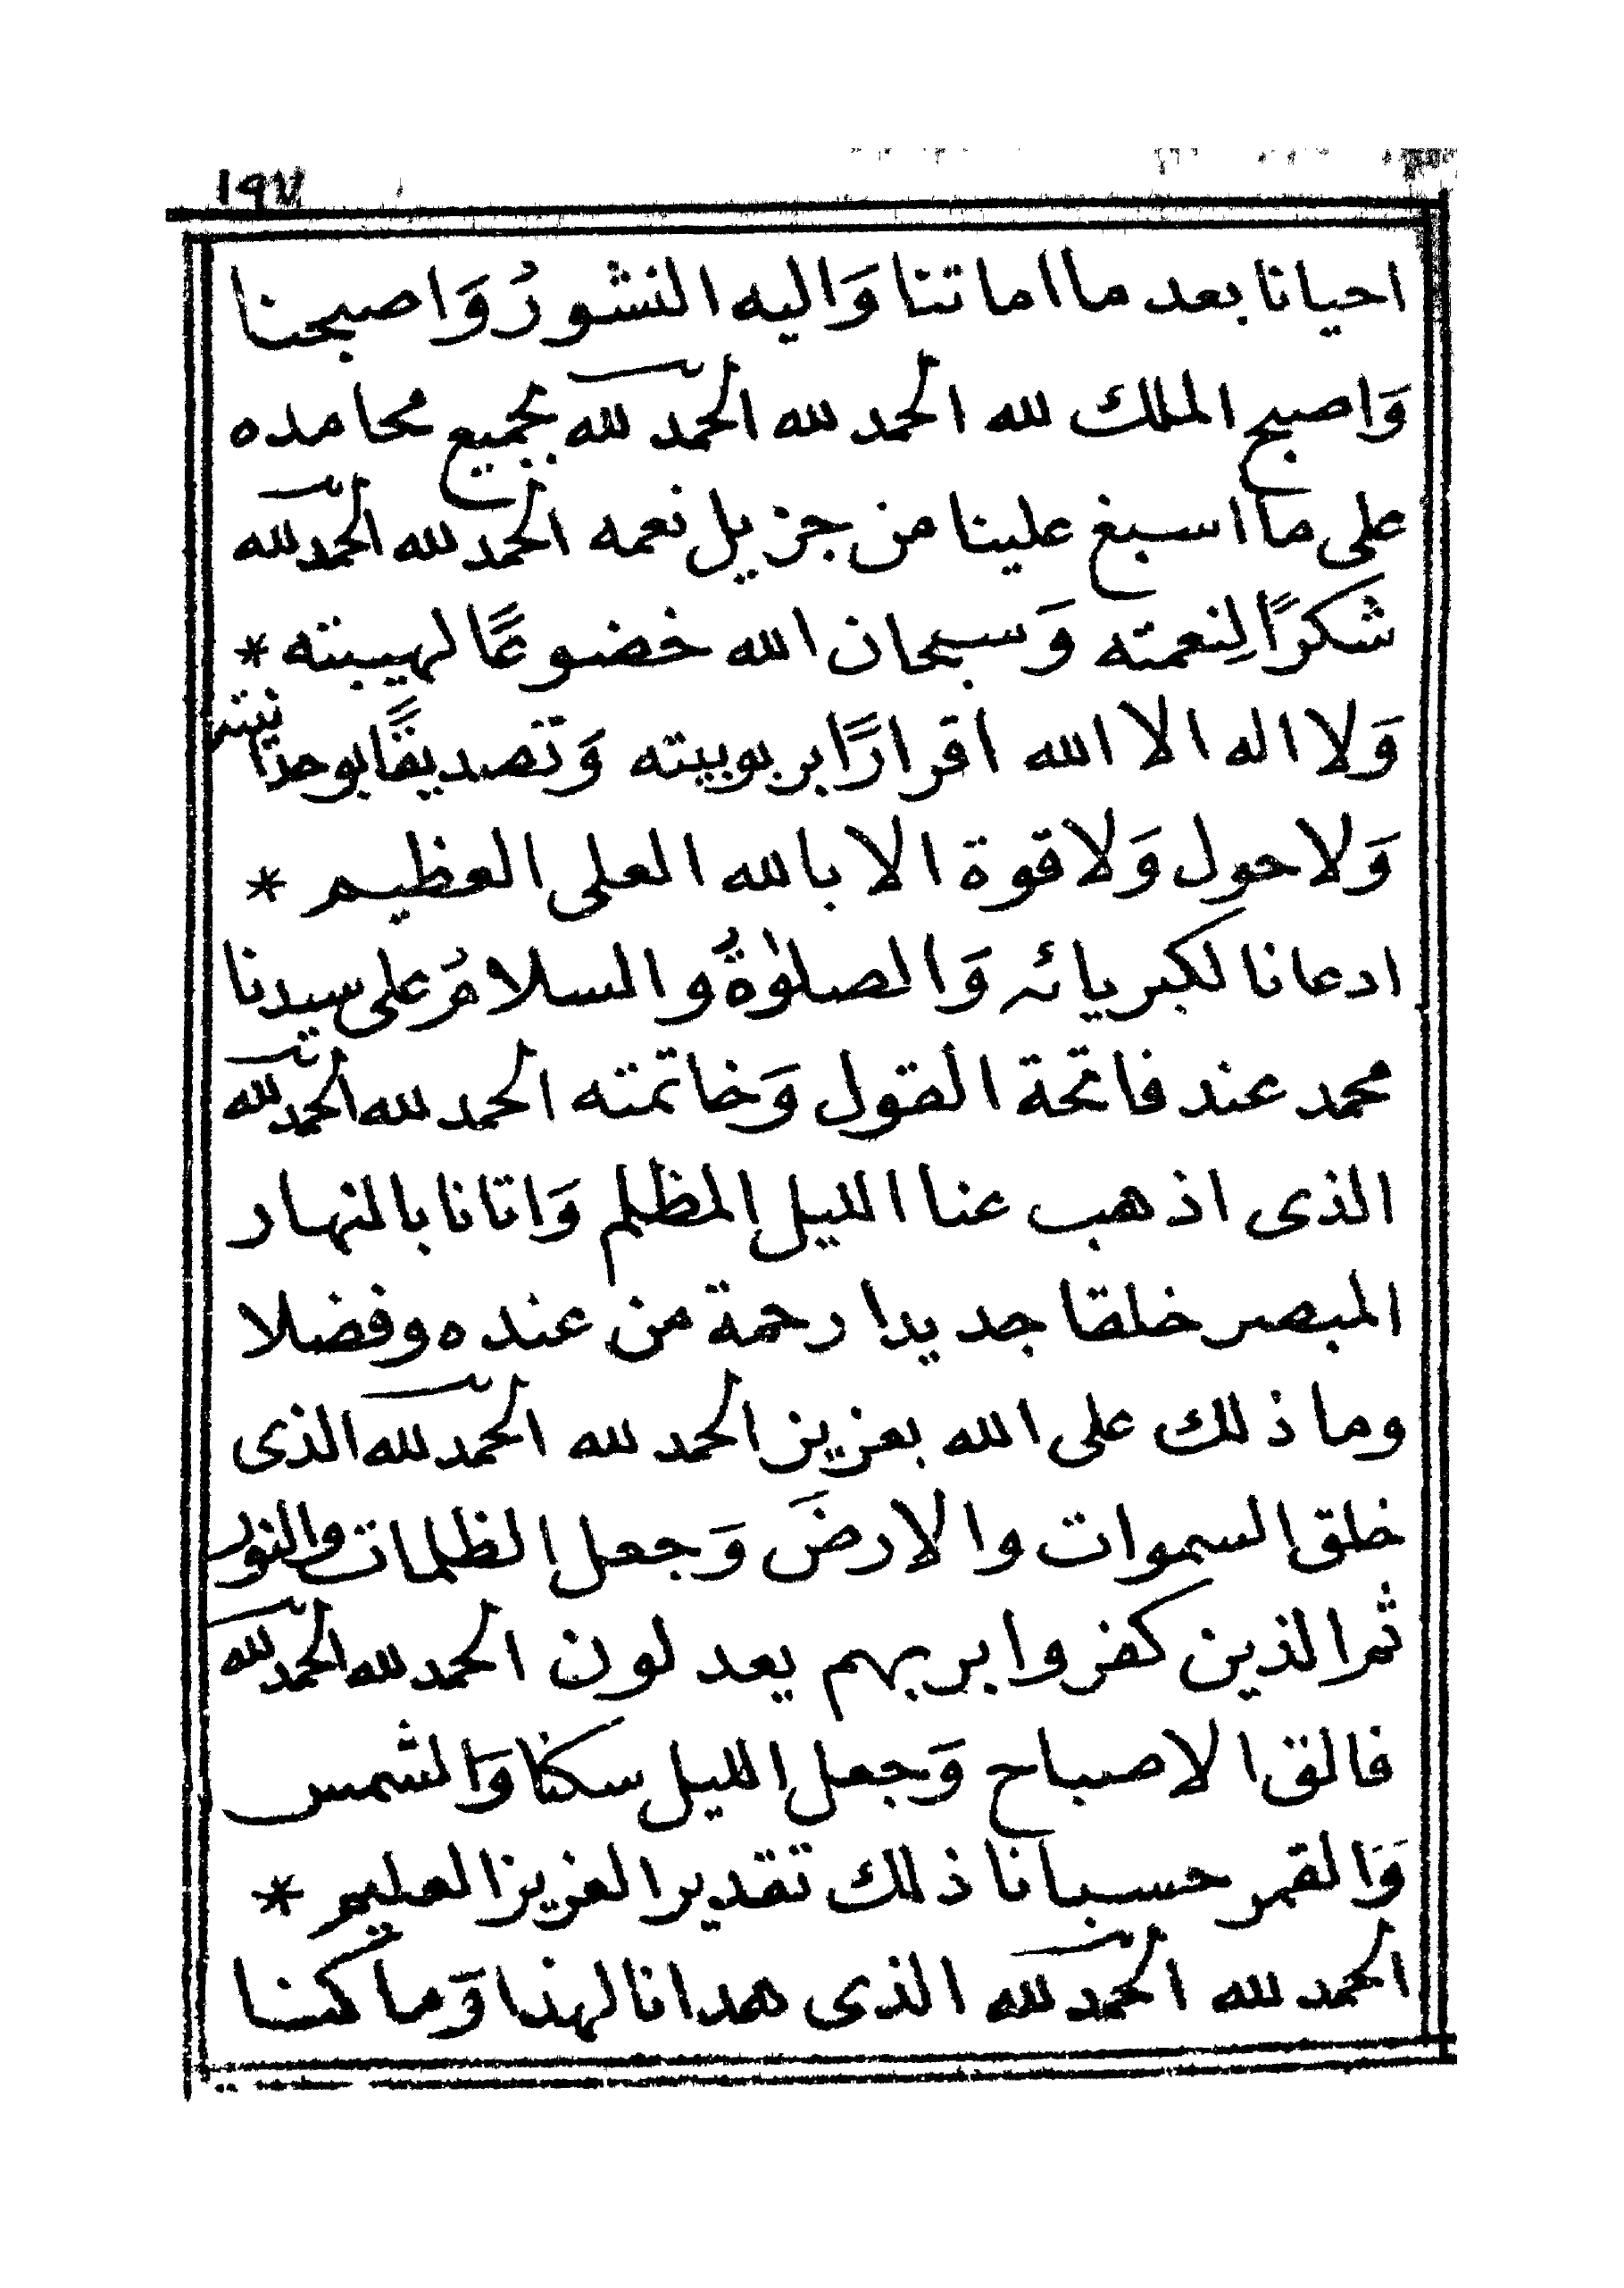 ١٩٧
احيانا بعد ما اماتنا وَاليه النشورُ وَاصبحنا
وَاصبح الملك لله الحمد لله الحمد لله بجميع محامده
على ما اسبغ علينا من جزيل نعمه الحمد لله الحمد لله
شكرًا لِنعمته وَسبحان الله خضوعًا لهيبته *
وَلا اله الا الله اقرارًا بربوبيته وَتصديقًا بوحدانيته
وَلا حول وَلا قوة الا بالله العلى العظيم *
ادعانا لكبريائه وَالصلوٰةُ والسلامُ على سيدنا
محمد عند فاتحة القول وَخاتمته الحمد لله الحمد لله
الذى اذهب عنا الليل المظلم وَاتانا بالنهار
المبصر خلقا جديدا رحمة من عنده وفضلا
وما ذلك على الله بعزيز الحمد لله الحمد لله الذى
خلق السموات والارضَ وَجعل الظلمات والنور
ثم الذين كفروا بربهم يعدلون الحمد لله الحمد لله
فالق الاصباح وَجعل الليل سكنا وَالشمس
وَالقمر حسبانا ذلك تقدير العزيز العليم *
الحمد لله الحمد لله الذى هدانا لهذا وَما كنا